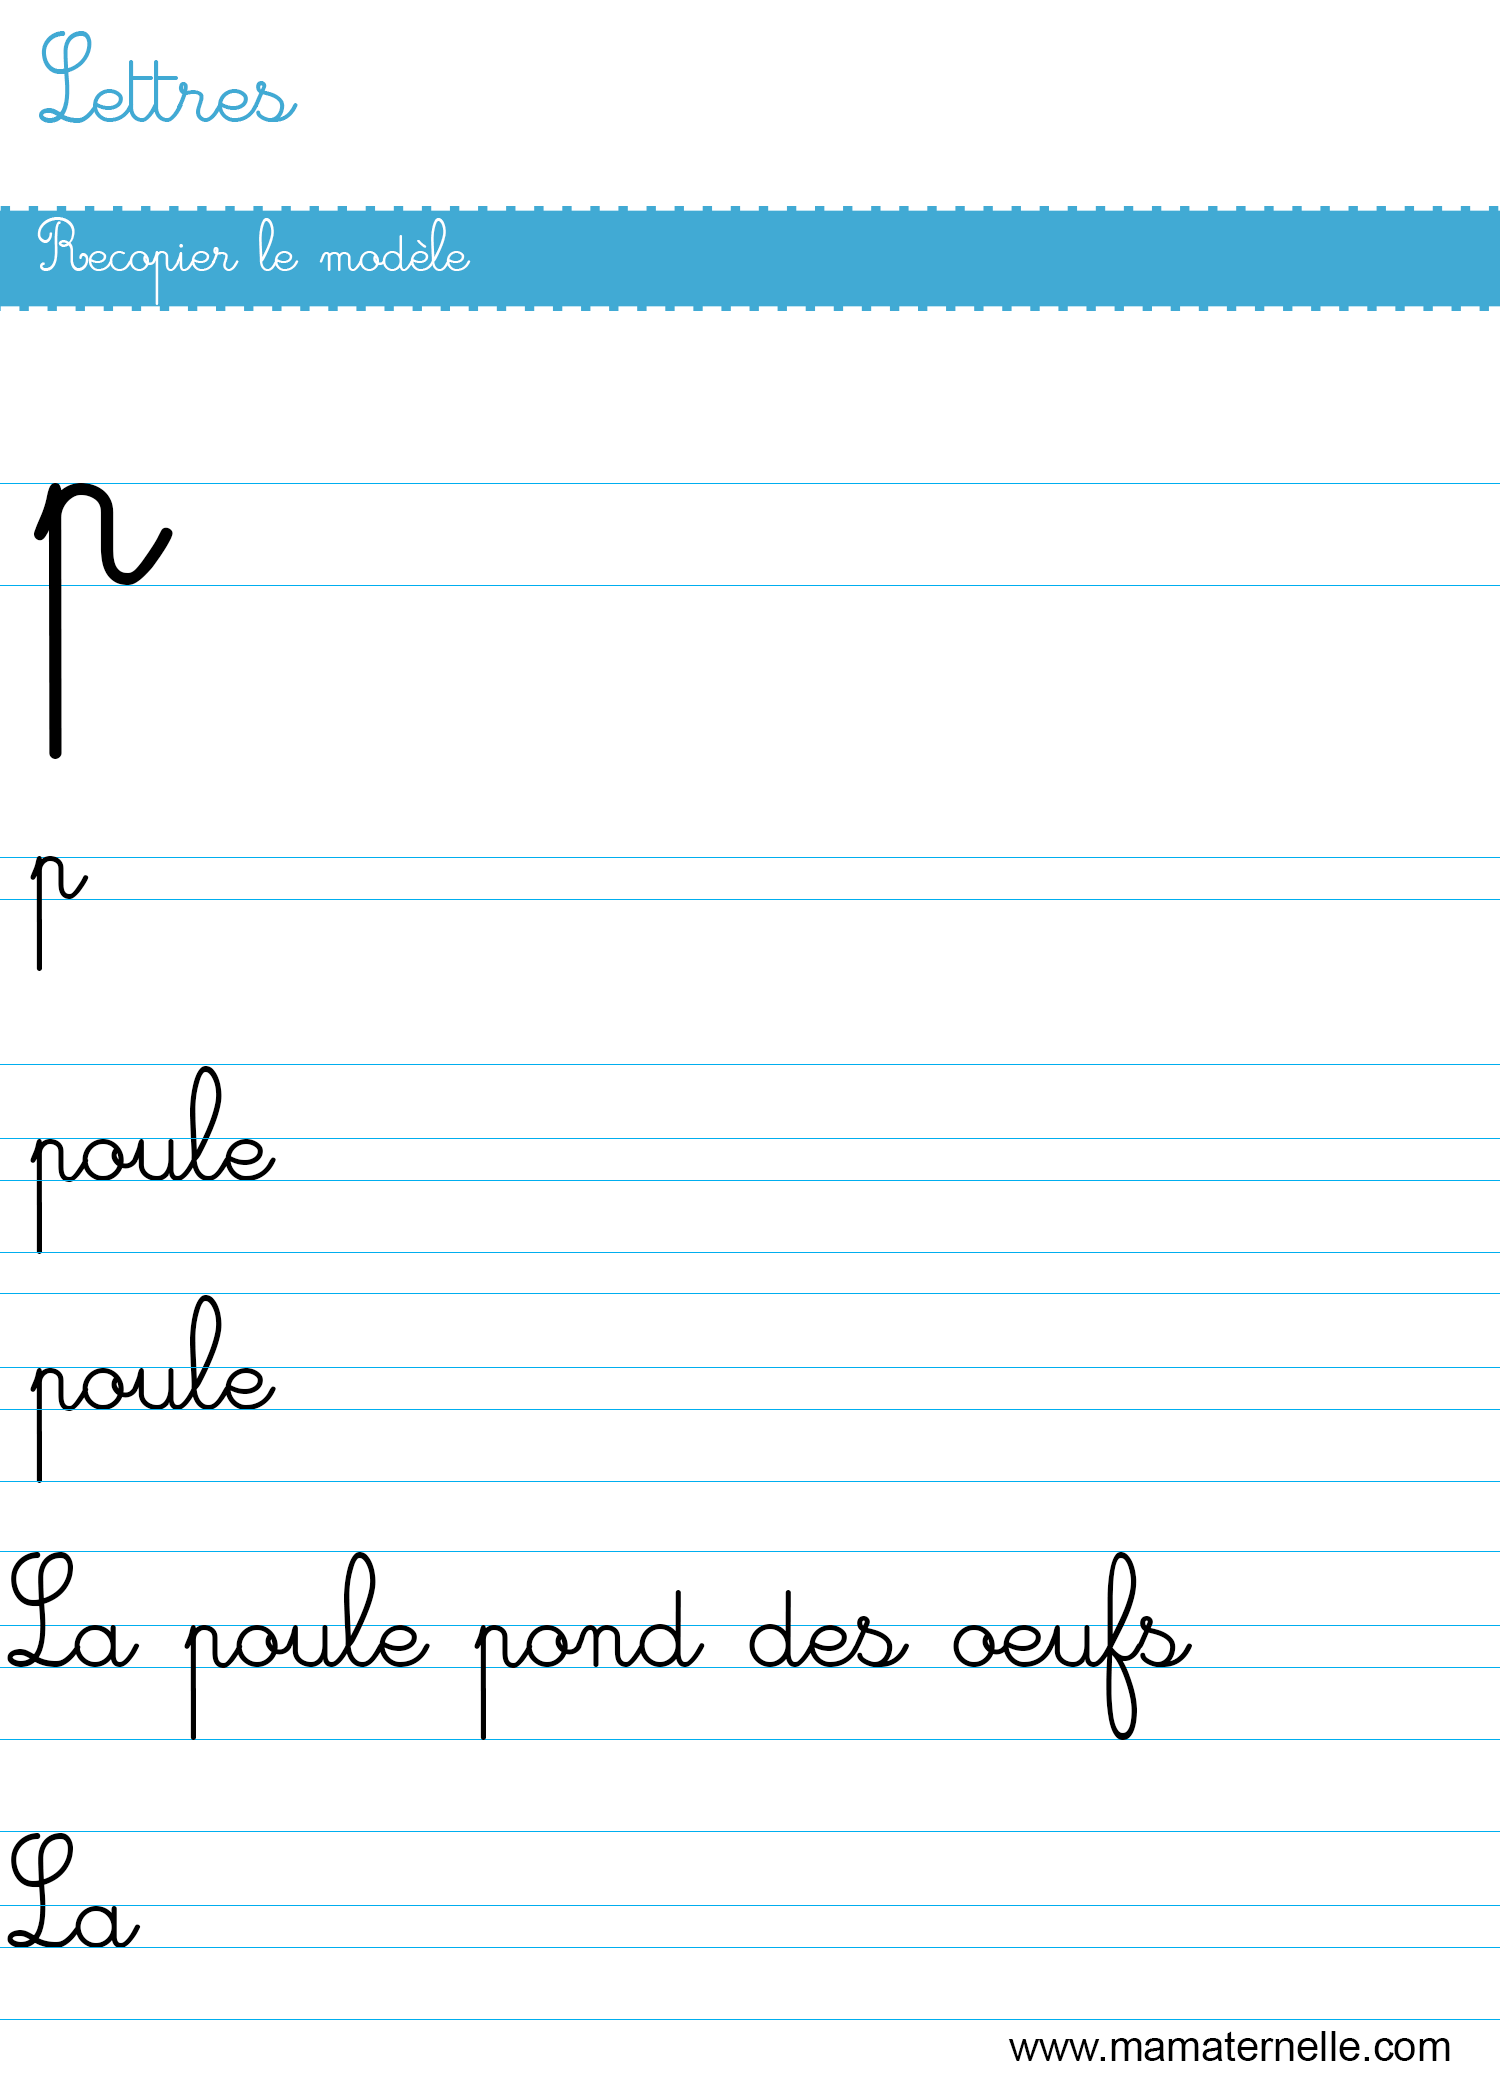 Lettres
Recopier le modèle
p
p
poule
poule
La poule pond des oeufs
La
www.mamaternelle.com